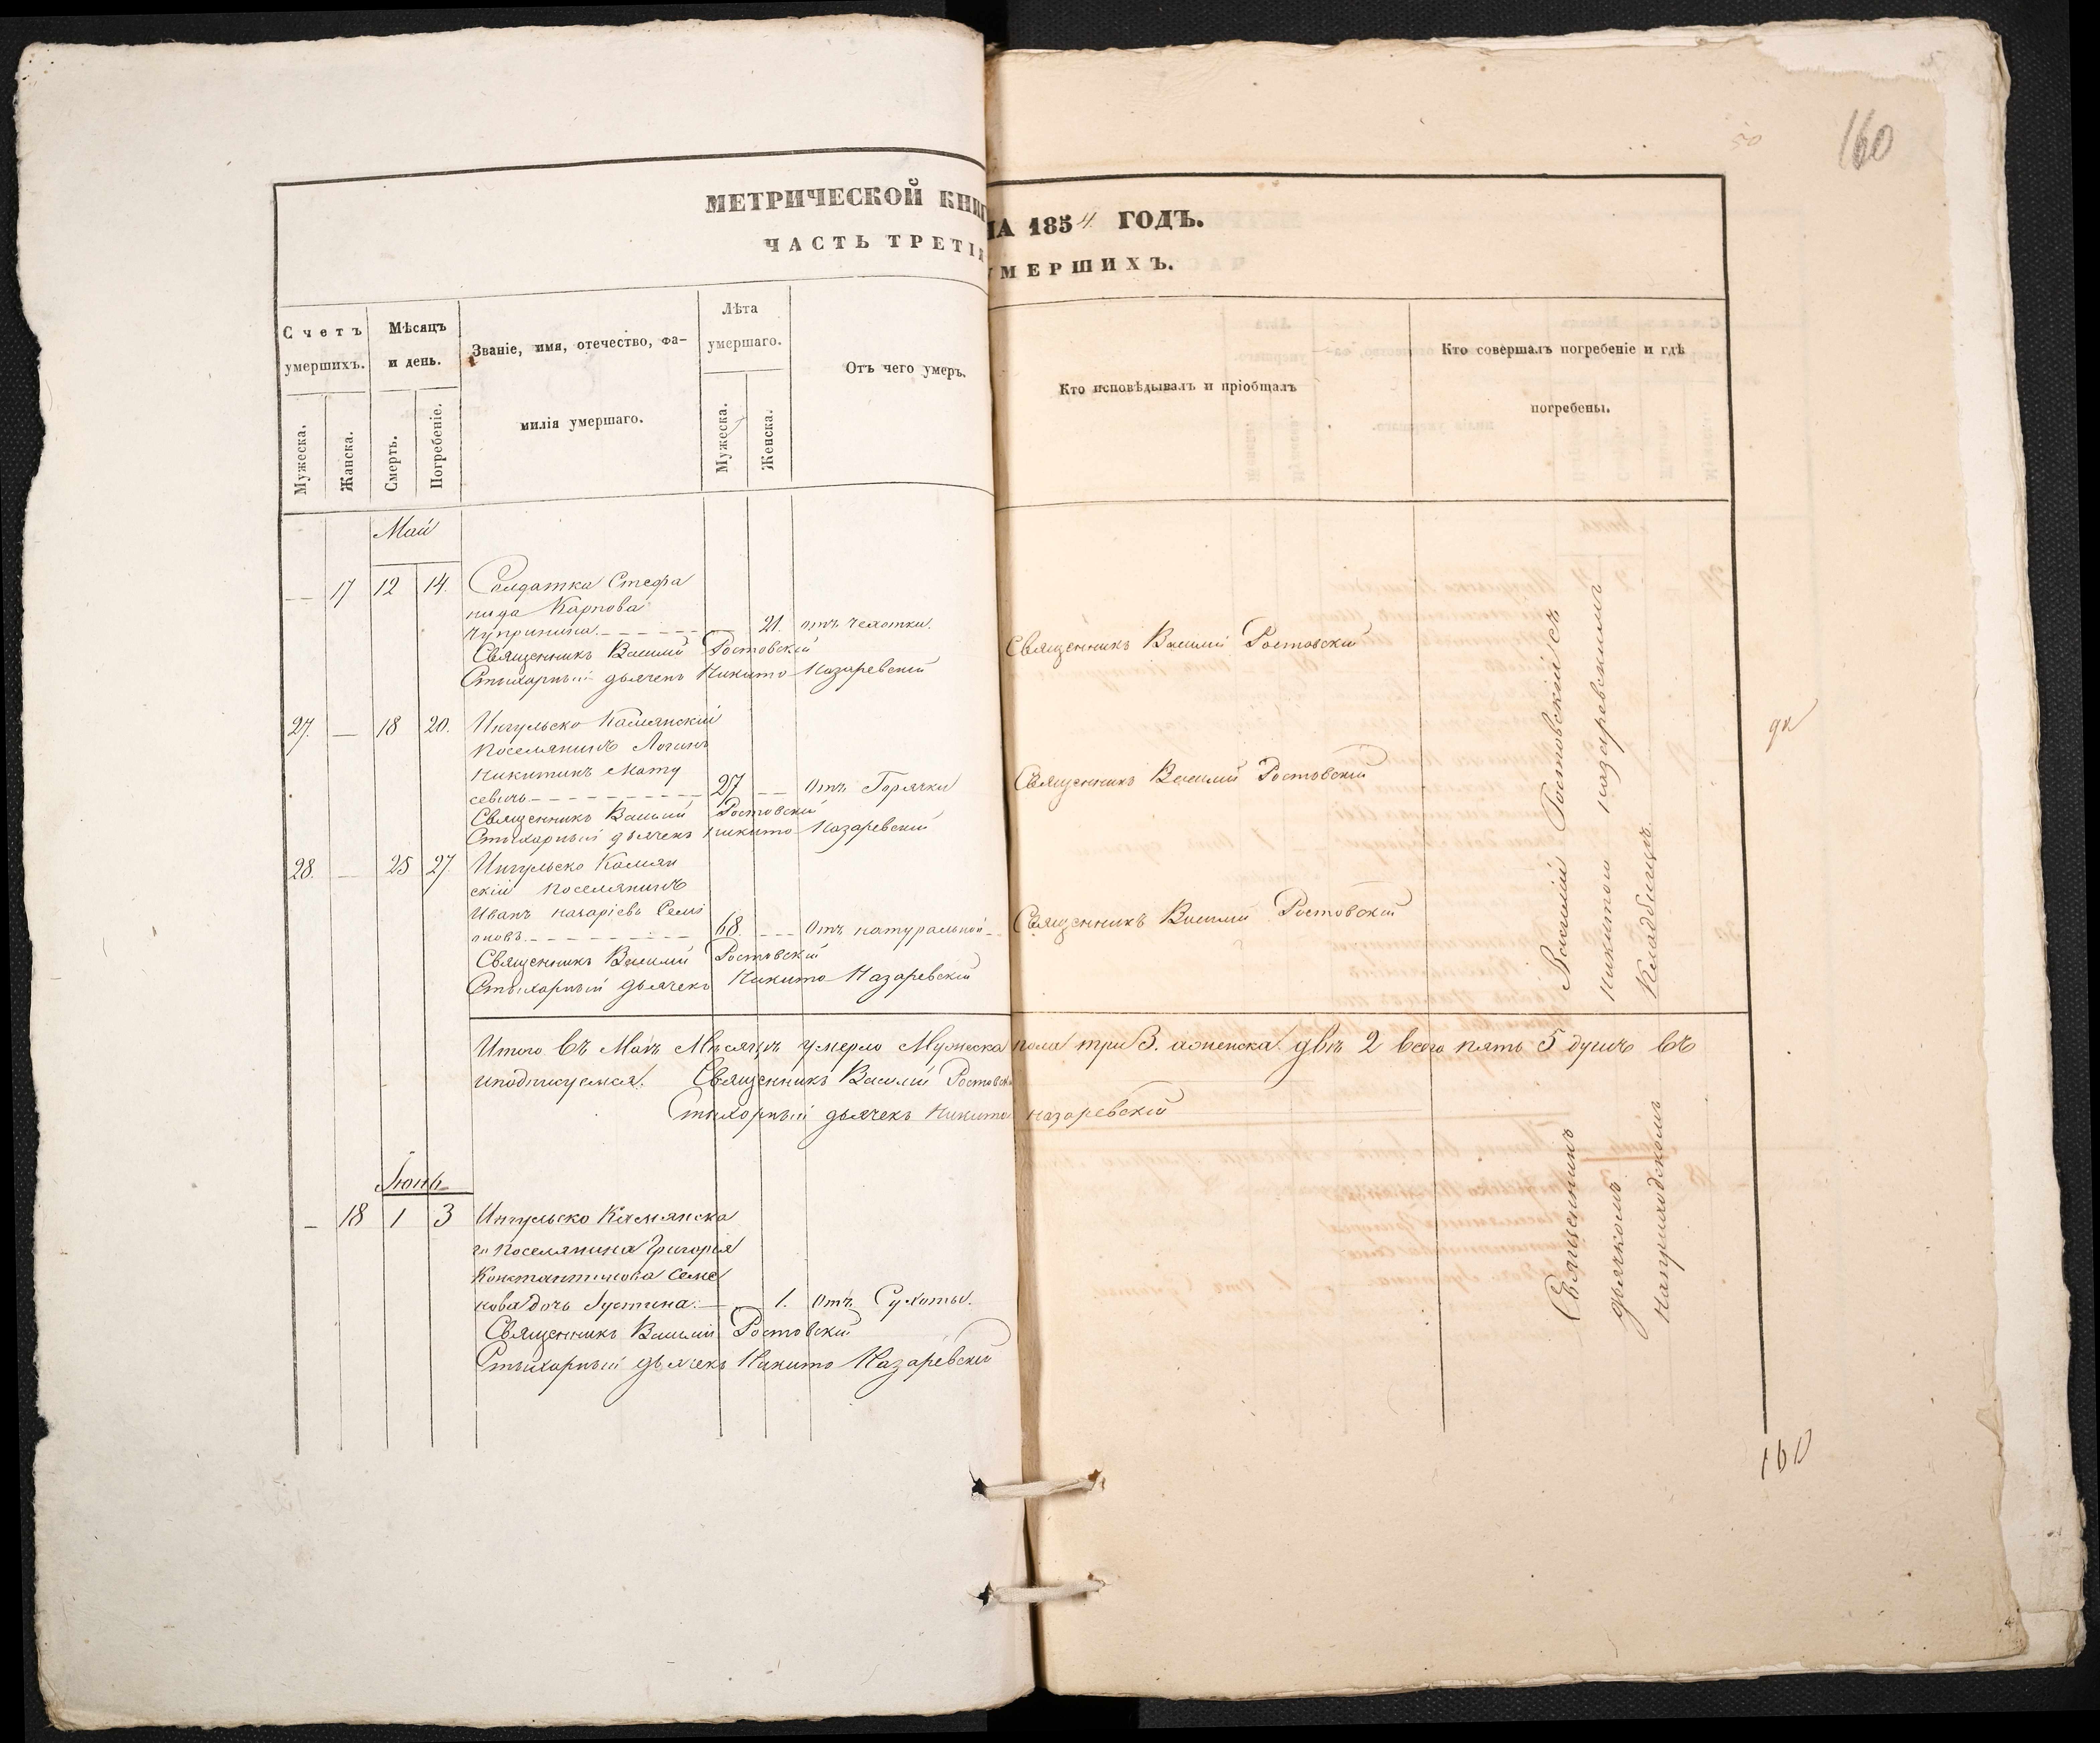 160
50
МЕТРИЧЕСКОЙ КНИГ
НА 1854 ГОДЪ.
ЧАСТЬ ТРЕТІЯ
УМЕРШИХЪ.
Счетъ умершихъ.
Мужеска.
Жанска.
Мѣсяцъ и день.
Смерть.
Погребеніе.
Званіе, имя, отечество, фа-
милія умершаго.
Лѣта умершаго.
Мужеска.
Женска.
Отъ чего умеръ.
Кто исповѣдывалъ и пріобщалъ
Кто совершалъ погребеніе и гдѣ
погребены.
Май
— 17 12 14. Солдатка Стефа
нида Карпова
Чупринина. — 21. отъ чехотки. Священникъ Василій Ростовскій
Священникъ Василій Ростовскій
Стихарный дьячекъ Никита Назаревскій
27. — 18 20. Ингульско Камянскій
Поселянинъ Логинъ
Никитинъ Мату
севичь — 27 — Отъ Горячки Священникъ Василій Ростовскій
Священникъ Василій Ростовскій
Стихарный дьячекъ Никита Назаревскій
28. — 25 27. Ингульско Камян
скій Поселянинъ
Иванъ Назаріевъ Семі
оновъ — 68. — Отъ натуральной — Священникъ Василій Ростовскій
Священникъ Василій Ростовскій
Стихарный дьячекъ Никита Назаревскій
Итого въ Маѣ Мѣсяцѣ умерло Мужеска пола три 3. аженска двѣ 2 всего пять 5 душъ въ
иподписуемся. Священникъ Василій Ростовскі
Стихарный дьячекъ Никита Назаревскій
Іюнь
— 18 1 3 Ингульско Камянска
го Поселянина Григорія
Константинова Семе
нова дочь Іустина. — 1. Отъ Сухоты.
Священникъ Василій Ростовскій
Стихарный дьячекъ Никита Назаревскій
Священникъ Василій Ростовскій съ
дьячкомъ Никитою Назаревскимъ
Наприходскомъ Кладбищѣ.
160